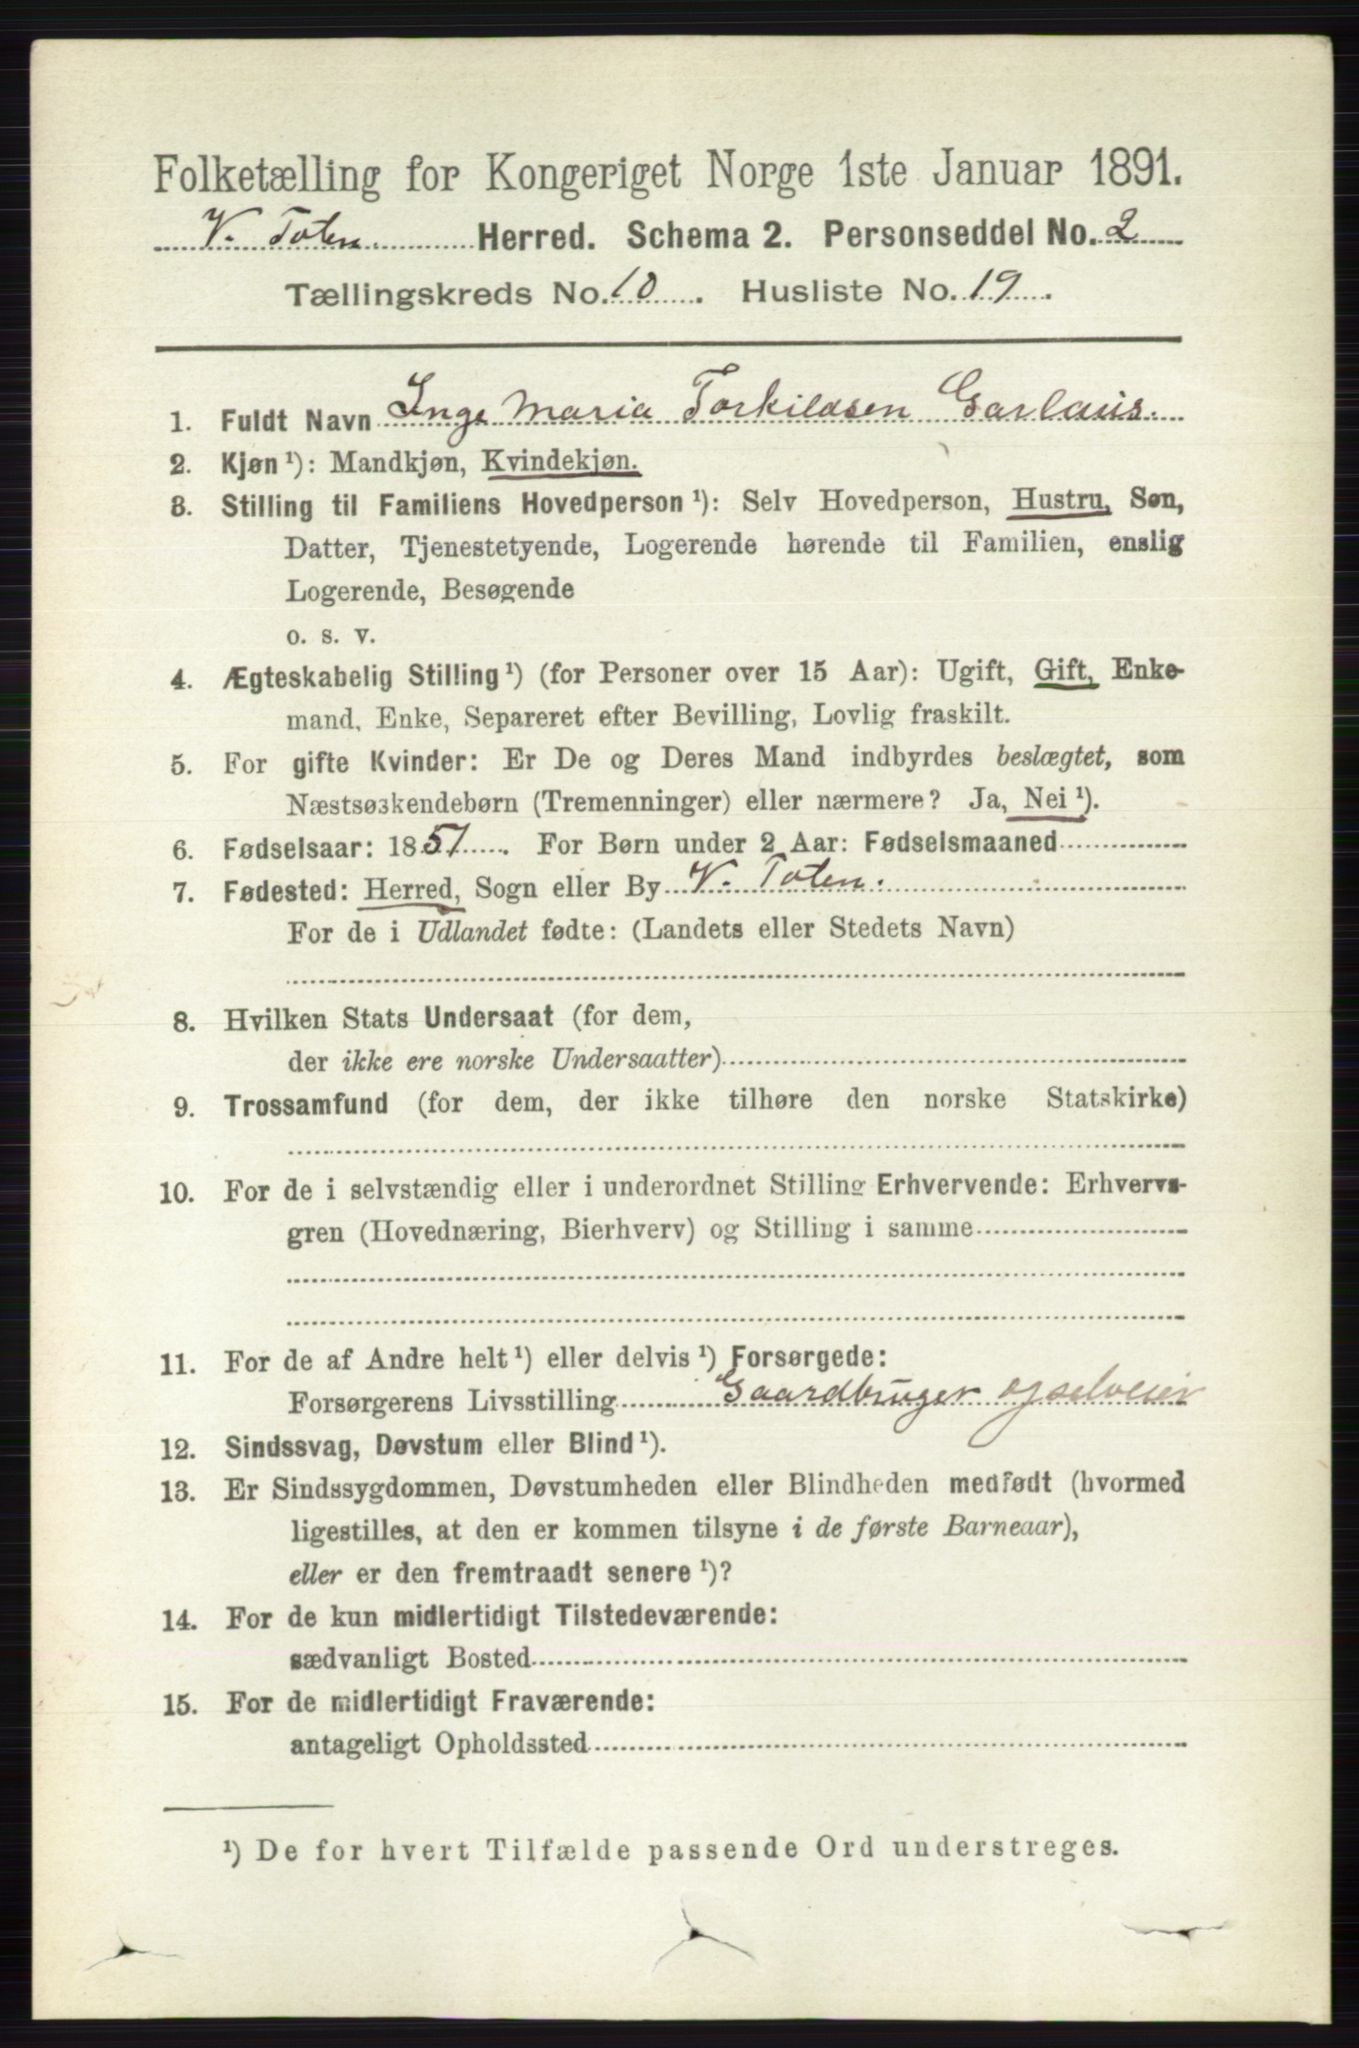 Folketælling for Kongeriget Norge 1ste Januar 1891.
V. Toten. Herred. Schema 2. Personseddel No. 2
Tællingskreds No. 10. Husliste No. 19.
1. Fuldt Navn Inge Maria Torkildsen
2. Kjøn ¹): Mandkjøn, Kvindekjøn.
3. Stilling til Familiens Hovedperson ¹): Selv Hovedperson, Hustru, Søn,
Datter, Tjenestetyende, Logerende hørende til Familien, enslig
Logerende, Besøgende
o. s. v.
4. Ægteskabelig Stilling ¹) (for Personer over 15 Aar): Ugift, Gift, Enke-
mand, Enke, Separeret efter Bevilling, Lovlig fraskilt.
5. For gifte Kvinder: Er De og Deres Mand indbyrdes beslægtet, som
Næstsøskendebørn (Tremenninger) eller nærmere? Ja, Nei ¹).
6. Fødselsaar: 1857. For Børn under 2 Aar: Fødselsmaaned
7. Fødested: Herred, Sogn eller By V. Toten.
For de i Udlandet fødte: (Landets eller Stedets Navn)
8. Hvilken Stats Undersaat (for dem,
der ikke ere norske Undersaatter)
9. Trossamfund (for dem, der ikke tilhøre den norske Statskirke)
10. For de i selvstændig eller i underordnet Stilling Erhvervende: Erhvervs-
gren (Hovednæring, Bierhverv) og Stilling i samme
11. For de af Andre helt ¹) eller delvis ¹) Forsørgede:
Forsørgerens Livsstilling Gaardbruger og selveier
12. Sindssvag, Døvstum eller Blind ¹).
13. Er Sindssygdommen, Døvstumheden eller Blindheden medfødt (hvormed
ligestilles, at den er kommen tilsyne i de første Barneaar),
eller er den fremtraadt senere ¹)?
14. For de kun midlertidigt Tilstedeværende:
sædvanligt Bosted
15. For de midlertidigt Fraværende:
antageligt Opholdssted
¹) De for hvert Tilfælde passende Ord understreges.